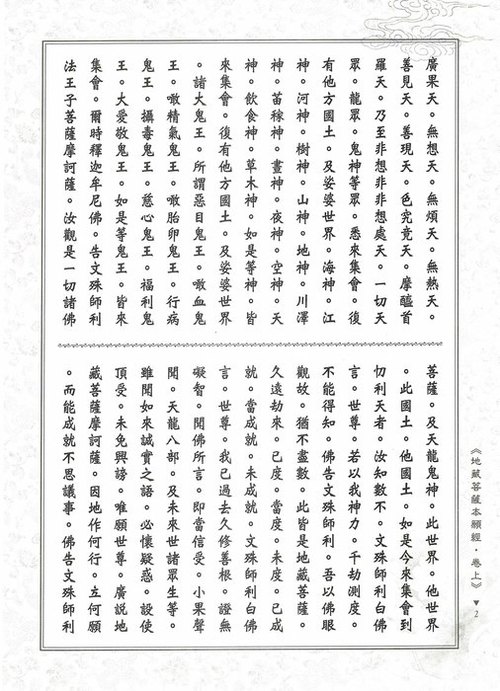 廣果天。無想天。無煩天。無熱天。
善見天。善現天。色究竟天。摩醯首
羅天。乃至非想非非想處天。一切天
眾。龍眾。鬼神等眾。悉來集會。復
有他方國土。及娑婆世界。海神。江
神。河神。樹神。山神。地神。川澤
神。苗稼神。晝神。夜神。空神。天
神。飲食神。草木神。如是等神。皆
來集會。復有他方國土。及娑婆世界
。諸大鬼王。所謂惡目鬼王。噉血鬼
王。噉精氣鬼王。噉胎卵鬼王。行病
鬼王。攝毒鬼王。慈心鬼王。福利鬼
王。大愛敬鬼王。如是等鬼王。皆來
集會。爾時釋迦牟尼佛。告文殊師利
法王子菩薩摩訶薩。汝觀是一切諸佛
菩薩。及天龍鬼神。此世界。他世界
。此國土。他國土。如是今來集會到
忉利天者。汝知數不。文殊師利白佛
言。世尊。若以我神力。千劫測度。
不能得知。佛告文殊師利。吾以佛眼
觀故。猶不盡數。此皆是地藏菩薩。
久遠劫來。已度。當度。未度。已成
就。當成就。未成就。文殊師利白佛
言。世尊。我已過去久修善根。證無
礙智。聞佛所言。即當信受。小果聲
聞。天龍八部。及未來世諸眾生等。
雖聞如來誠實之語。必懷疑惑。設使
頂受。未免興謗。唯願世尊。廣說地
藏菩薩摩訶薩。因地作何行。立何願
。而能成就不思議事。佛告文殊師利
《地藏菩薩本願經．卷上》▼2